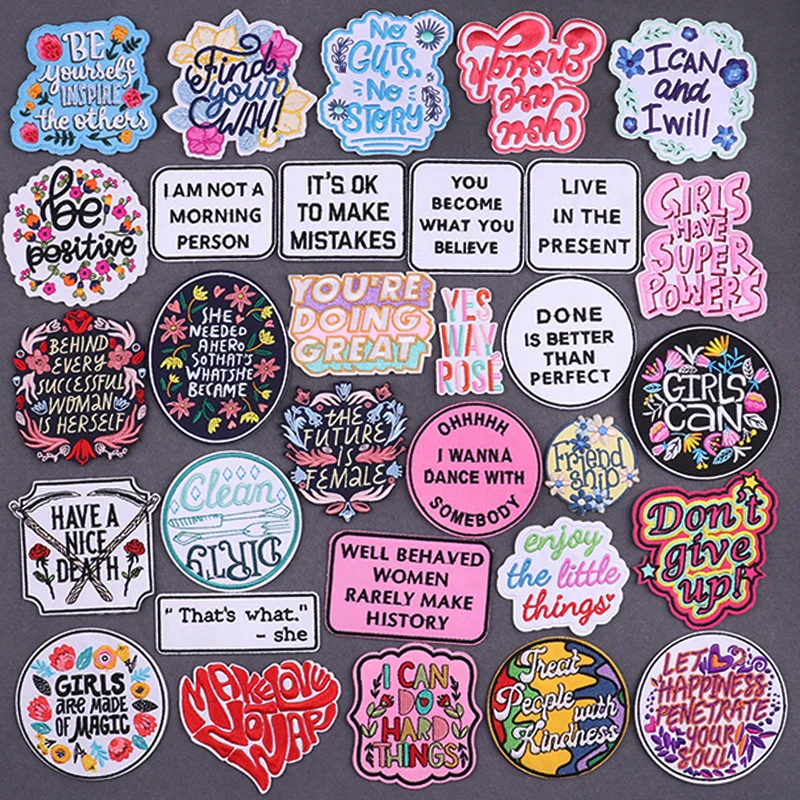 BE
yourself
INSPIRE
the others
Find
your
WAY!
NO
GUTS,
NO
STORY
you
are
enough
I CAN
and
I will
be
positive
I AM NOT A
MORNING
PERSON
IT'S OK
TO MAKE
MISTAKES
YOU
BECOME
WHAT YOU
BELIEVE
LIVE
IN THE
PRESENT
GIRLS
HAVE
SUPER
POWERS
BEHIND
EVERY
SUCCESSFUL
WOMAN
IS HERSELF
SHE
NEEDED
A HERO
SO THAT'S
WHAT SHE
BECAME
YOU'RE
DOING
GREAT
YES
WAY
ROSÉ
DONE
IS BETTER
THAN
PERFECT
GIRLS
CAN
THE
FUTURE
IS
FEMALE
OHHHHH
I WANNA
DANCE WITH
SOMEBODY
Friend
ship
HAVE A
NICE
DEATH
Clean
DIRTY
WELL BEHAVED
WOMEN
RARELY MAKE
HISTORY
enjoy
the little
things
Don't
give
up!
"That's what."
- she
GIRLS
ARE MADE
OF MAGIC
MAKE LOVE
NOT WAR
I CAN
DO
HARD
THINGS
Treat
People
with
Kindness
LET
HAPPINESS
PENETRATE
YOUR
SOUL